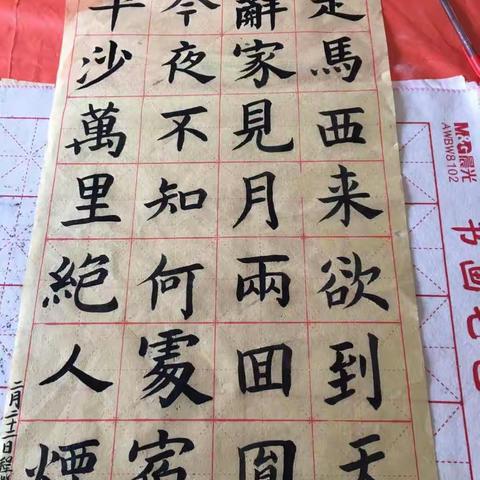 走馬西来欲到天
辭家見月兩回圓
今夜不知何處宿
平沙萬里絕人煙
二月二十一日程
M&G晨光
AWBW8102
书画